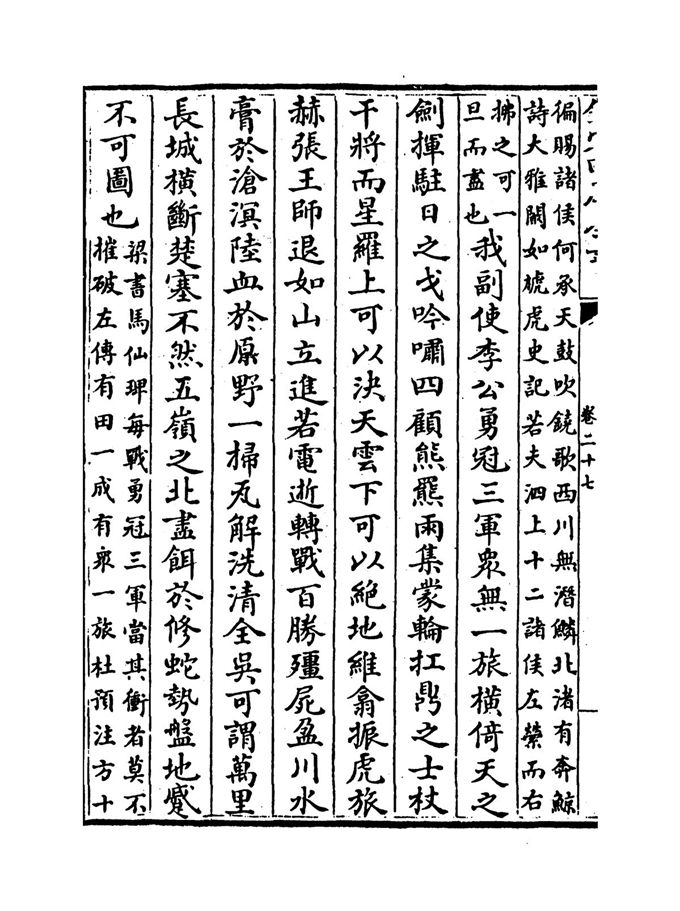 卷二十七
徧賜諸侯何承天鼓吹鐃歌西川無潛鱗北渚有奔鯨
詩大雅闞如虓虎史記若夫泗上十二諸侯左縈而右
拂之可一
旦而盡也
我副使李公勇冠三軍衆無一旅橫倚天之
劍揮駐日之戈吟嘯四顧熊羆雨集蒙輪扛鼎之士杖
干將而星羅上可以決天雲下可以絶地維翕振虎旅
赫張王師退如山立進若電逝轉戰百勝殭屍盈川水
膏於滄溟陸血於原野一掃瓦解洗清全吳可謂萬里
長城橫斷楚塞不然五嶺之北盡餌於修蛇勢盤地蹙
不可圖也
梁書馬仙琕每戰勇冠三軍當其衝者莫不
摧破左傳有田一成有衆一旅杜預注方十